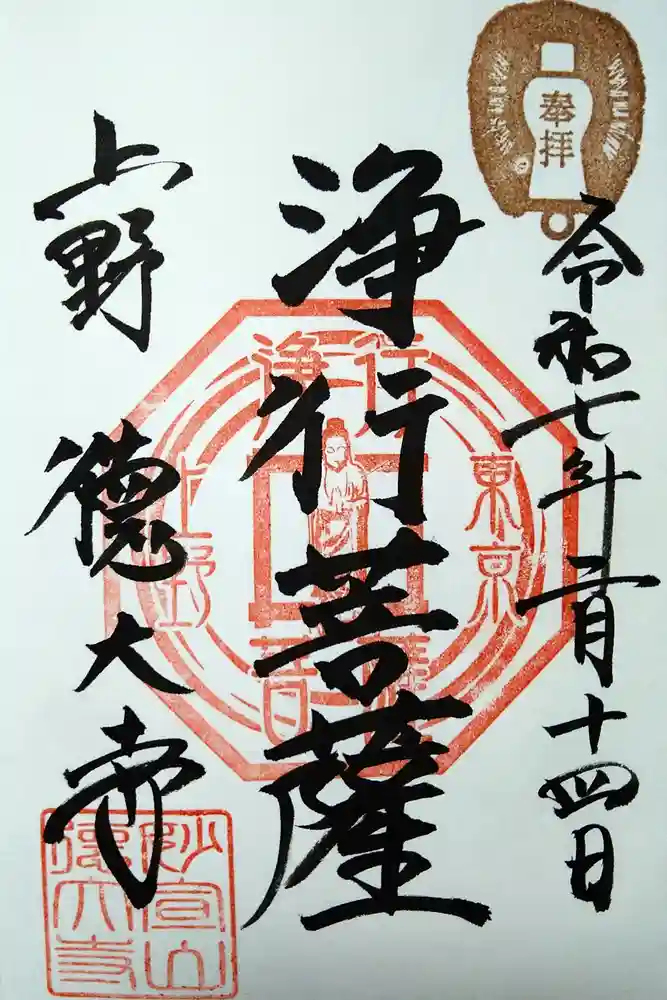 奉拝
令和七年二月十四日
浄行菩薩
上野 徳大寺
浄行
菩薩
東京
上野
妙宣山
徳大寺